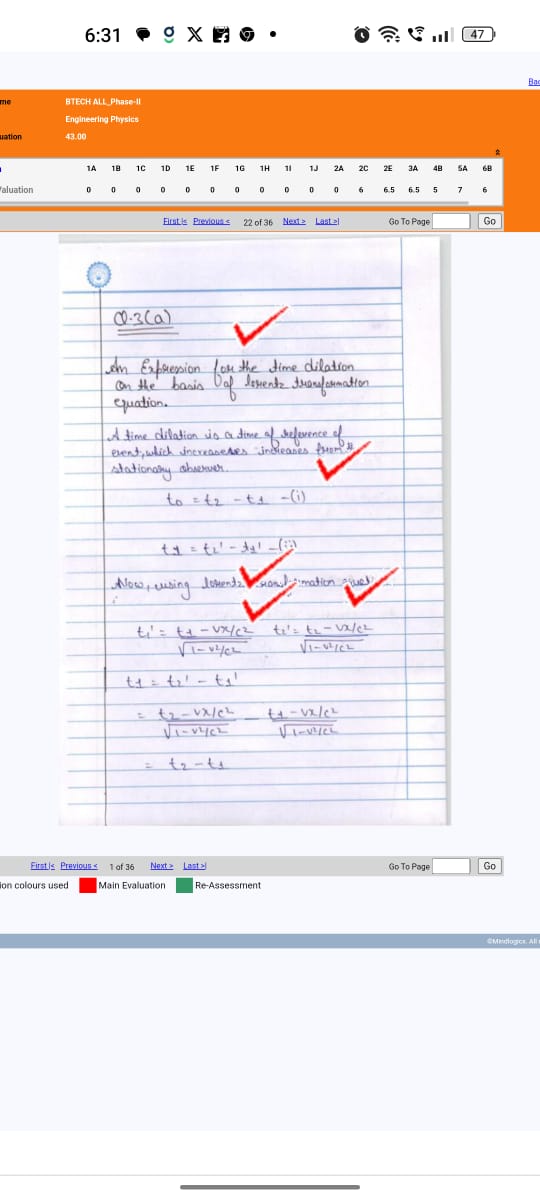 6:31
47
Bac
me
BTECH ALL_Phase-II
Engineering Physics
uation
43.00
1A 1B 1C 1D 1E 1F 1G 1H 1I 1J 2A 2C 2E 3A 4B 5A 6B
Valuation 0 0 0 0 0 0 0 0 0 0 0 6 6.5 6.5 5 7 6
First |< Previous < 22 of 36 Next > Last >| Go To Page Go
Q.3(a)
An Expression for the time dilation
on the basis of lorentz transformation
equation.
A time dilation is a time of reference of
event, which increases from
stationary observer.
t0 = t2 - t1 -(i)
t1 = t2' - t1' -(ii)
Now, using lorentz
t1' = t1 - vx/c2 t2' = t2 - vx/c2
√1-v2/c2 √1-v2/c2
t1 = t2' - t1'
= t2 - vx/c2 - t1 - vx/c2
√1-v2/c2 √1-v2/c2
= t2 - t1
First |< Previous < 1 of 36 Next > Last >| Go To Page Go
ion colours used Main Evaluation Re-Assessment
©Mindlogicx. All